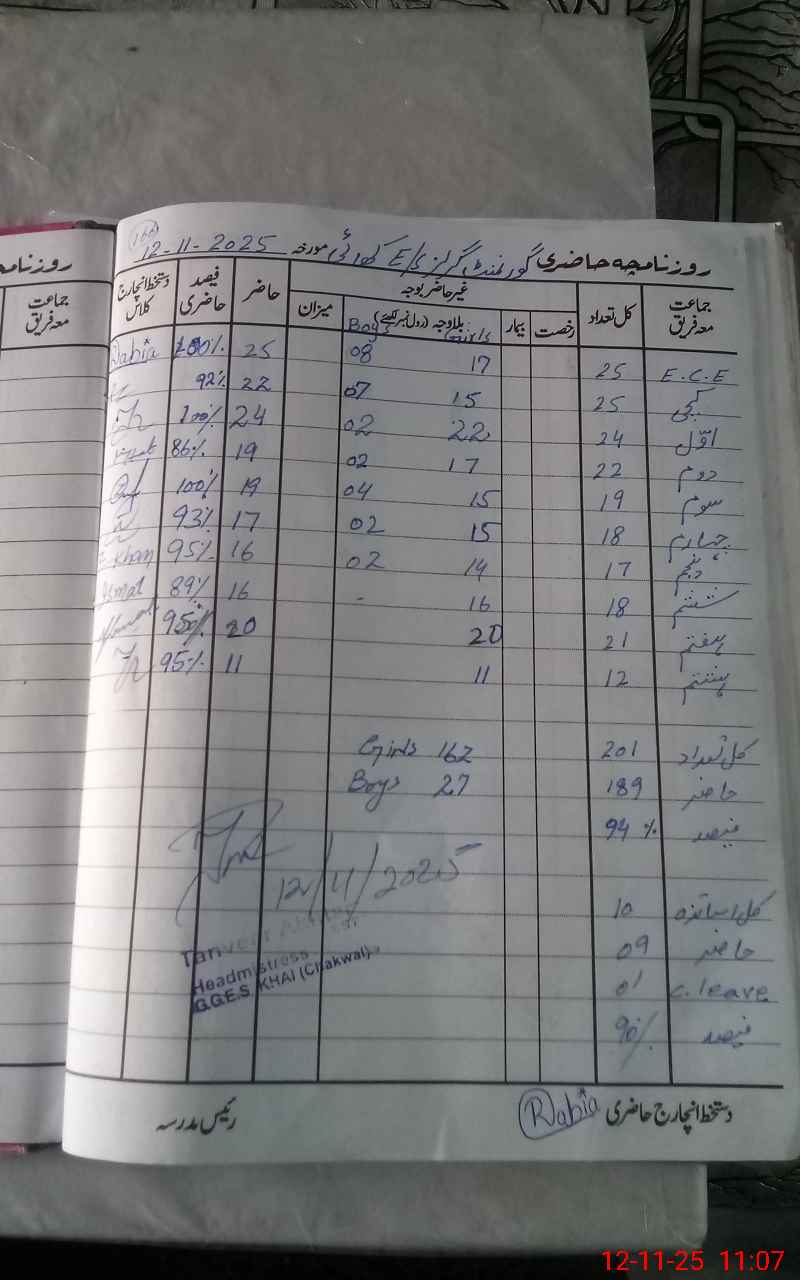 روزنامچہ حاضری گورنمنٹ گرلز E/S کھائی مورخہ 12-11-2025
166
جماعت معہ فریق کل تعداد غیر حاضر بوجہ حاضر فیصد حاضری دستخط انچارج کلاس
رخصت بیمار بلاوجہ (رول نمبر لکھئے) میزان
Girls Boys
E.C.E 25 17 08 25 100% Rabia
کچی 25 15 07 22 92%
اوّل 24 22 02 24 100%
دوم 22 17 02 19 86%
سوم 19 15 04 19 100%
چہارم 18 15 02 17 93%
پنجم 17 14 02 16 95% Khan
ششم 18 16 - 16 89%
ہفتم 21 20 20 95%
ہشتم 12 11 11 95%
کل تعداد 201 Girls 162
حاضر 189 Boys 27
فیصد 94 %
12/11/2025
کل اساتذہ 10
Tanveer Akhtar
حاضر 09
Headmistress
G.G.E.S. KHAI (Chakwal)
c.leave 01
فیصد 90%
دستخط انچارج حاضری Rabia رئیس مدرسہ
روزنامچہ
جماعت معہ فریق
12-11-25 11:07